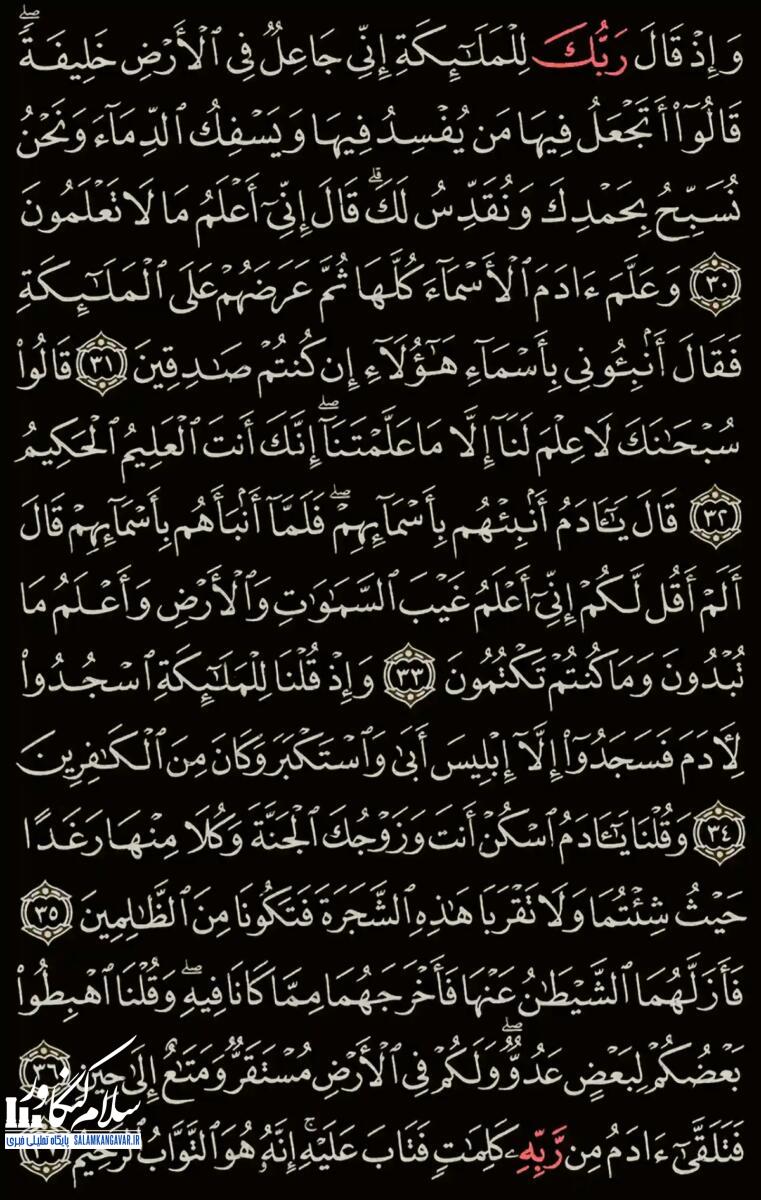 وَإِذْ قَالَ رَبُّكَ لِلْمَلَٰٓئِكَةِ إِنِّى جَاعِلٌ فِى ٱلْأَرْضِ خَلِيفَةً ۖ
قَالُوٓا۟ أَتَجْعَلُ فِيهَا مَن يُفْسِدُ فِيهَا وَيَسْفِكُ ٱلدِّمَآءَ وَنَحْنُ
نُسَبِّحُ بِحَمْدِكَ وَنُقَدِّسُ لَكَ ۖ قَالَ إِنِّىٓ أَعْلَمُ مَا لَا تَعْلَمُونَ
٣٠ وَعَلَّمَ ءَادَمَ ٱلْأَسْمَآءَ كُلَّهَا ثُمَّ عَرَضَهُمْ عَلَى ٱلْمَلَٰٓئِكَةِ
فَقَالَ أَنۢبِـُٔونِى بِأَسْمَآءِ هَٰٓؤُلَآءِ إِن كُنتُمْ صَٰدِقِينَ ٣١ قَالُوا۟
سُبْحَٰنَكَ لَا عِلْمَ لَنَآ إِلَّا مَا عَلَّمْتَنَآ ۖ إِنَّكَ أَنتَ ٱلْعَلِيمُ ٱلْحَكِيمُ
٣٢ قَالَ يَٰٓـَٔادَمُ أَنۢبِئْهُم بِأَسْمَآئِهِمْ ۖ فَلَمَّآ أَنۢبَأَهُم بِأَسْمَآئِهِمْ قَالَ
أَلَمْ أَقُل لَّكُمْ إِنِّىٓ أَعْلَمُ غَيْبَ ٱلسَّمَٰوَٰتِ وَٱلْأَرْضِ وَأَعْلَمُ مَا
تُبْدُونَ وَمَا كُنتُمْ تَكْتُمُونَ ٣٣ وَإِذْ قُلْنَا لِلْمَلَٰٓئِكَةِ ٱسْجُدُوا۟
لِـَٔادَمَ فَسَجَدُوٓا۟ إِلَّآ إِبْلِيسَ أَبَىٰ وَٱسْتَكْبَرَ وَكَانَ مِنَ ٱلْكَٰفِرِينَ
٣٤ وَقُلْنَا يَٰٓـَٔادَمُ ٱسْكُنْ أَنتَ وَزَوْجُكَ ٱلْجَنَّةَ وَكُلَا مِنْهَا رَغَدًا
حَيْثُ شِئْتُمَا وَلَا تَقْرَبَا هَٰذِهِ ٱلشَّجَرَةَ فَتَكُونَا مِنَ ٱلظَّٰلِمِينَ ٣٥
فَأَزَلَّهُمَا ٱلشَّيْطَٰنُ عَنْهَا فَأَخْرَجَهُمَا مِمَّا كَانَا فِيهِ ۖ وَقُلْنَا ٱهْبِطُوا۟
بَعْضُكُمْ لِبَعْضٍ عَدُوٌّ ۖ وَلَكُمْ فِى ٱلْأَرْضِ مُسْتَقَرٌّ وَمَتَٰعٌ إِلَىٰ حِينٍ ٣٦
فَتَلَقَّىٰٓ ءَادَمُ مِن رَّبِّهِۦ كَلِمَٰتٍ فَتَابَ عَلَيْهِ ۚ إِنَّهُۥ هُوَ ٱلتَّوَّابُ ٱلرَّحِيمُ ٣٧
سلام کنگاور
پایگاه تحلیلی خبری SALAMKANGAVAR.IR